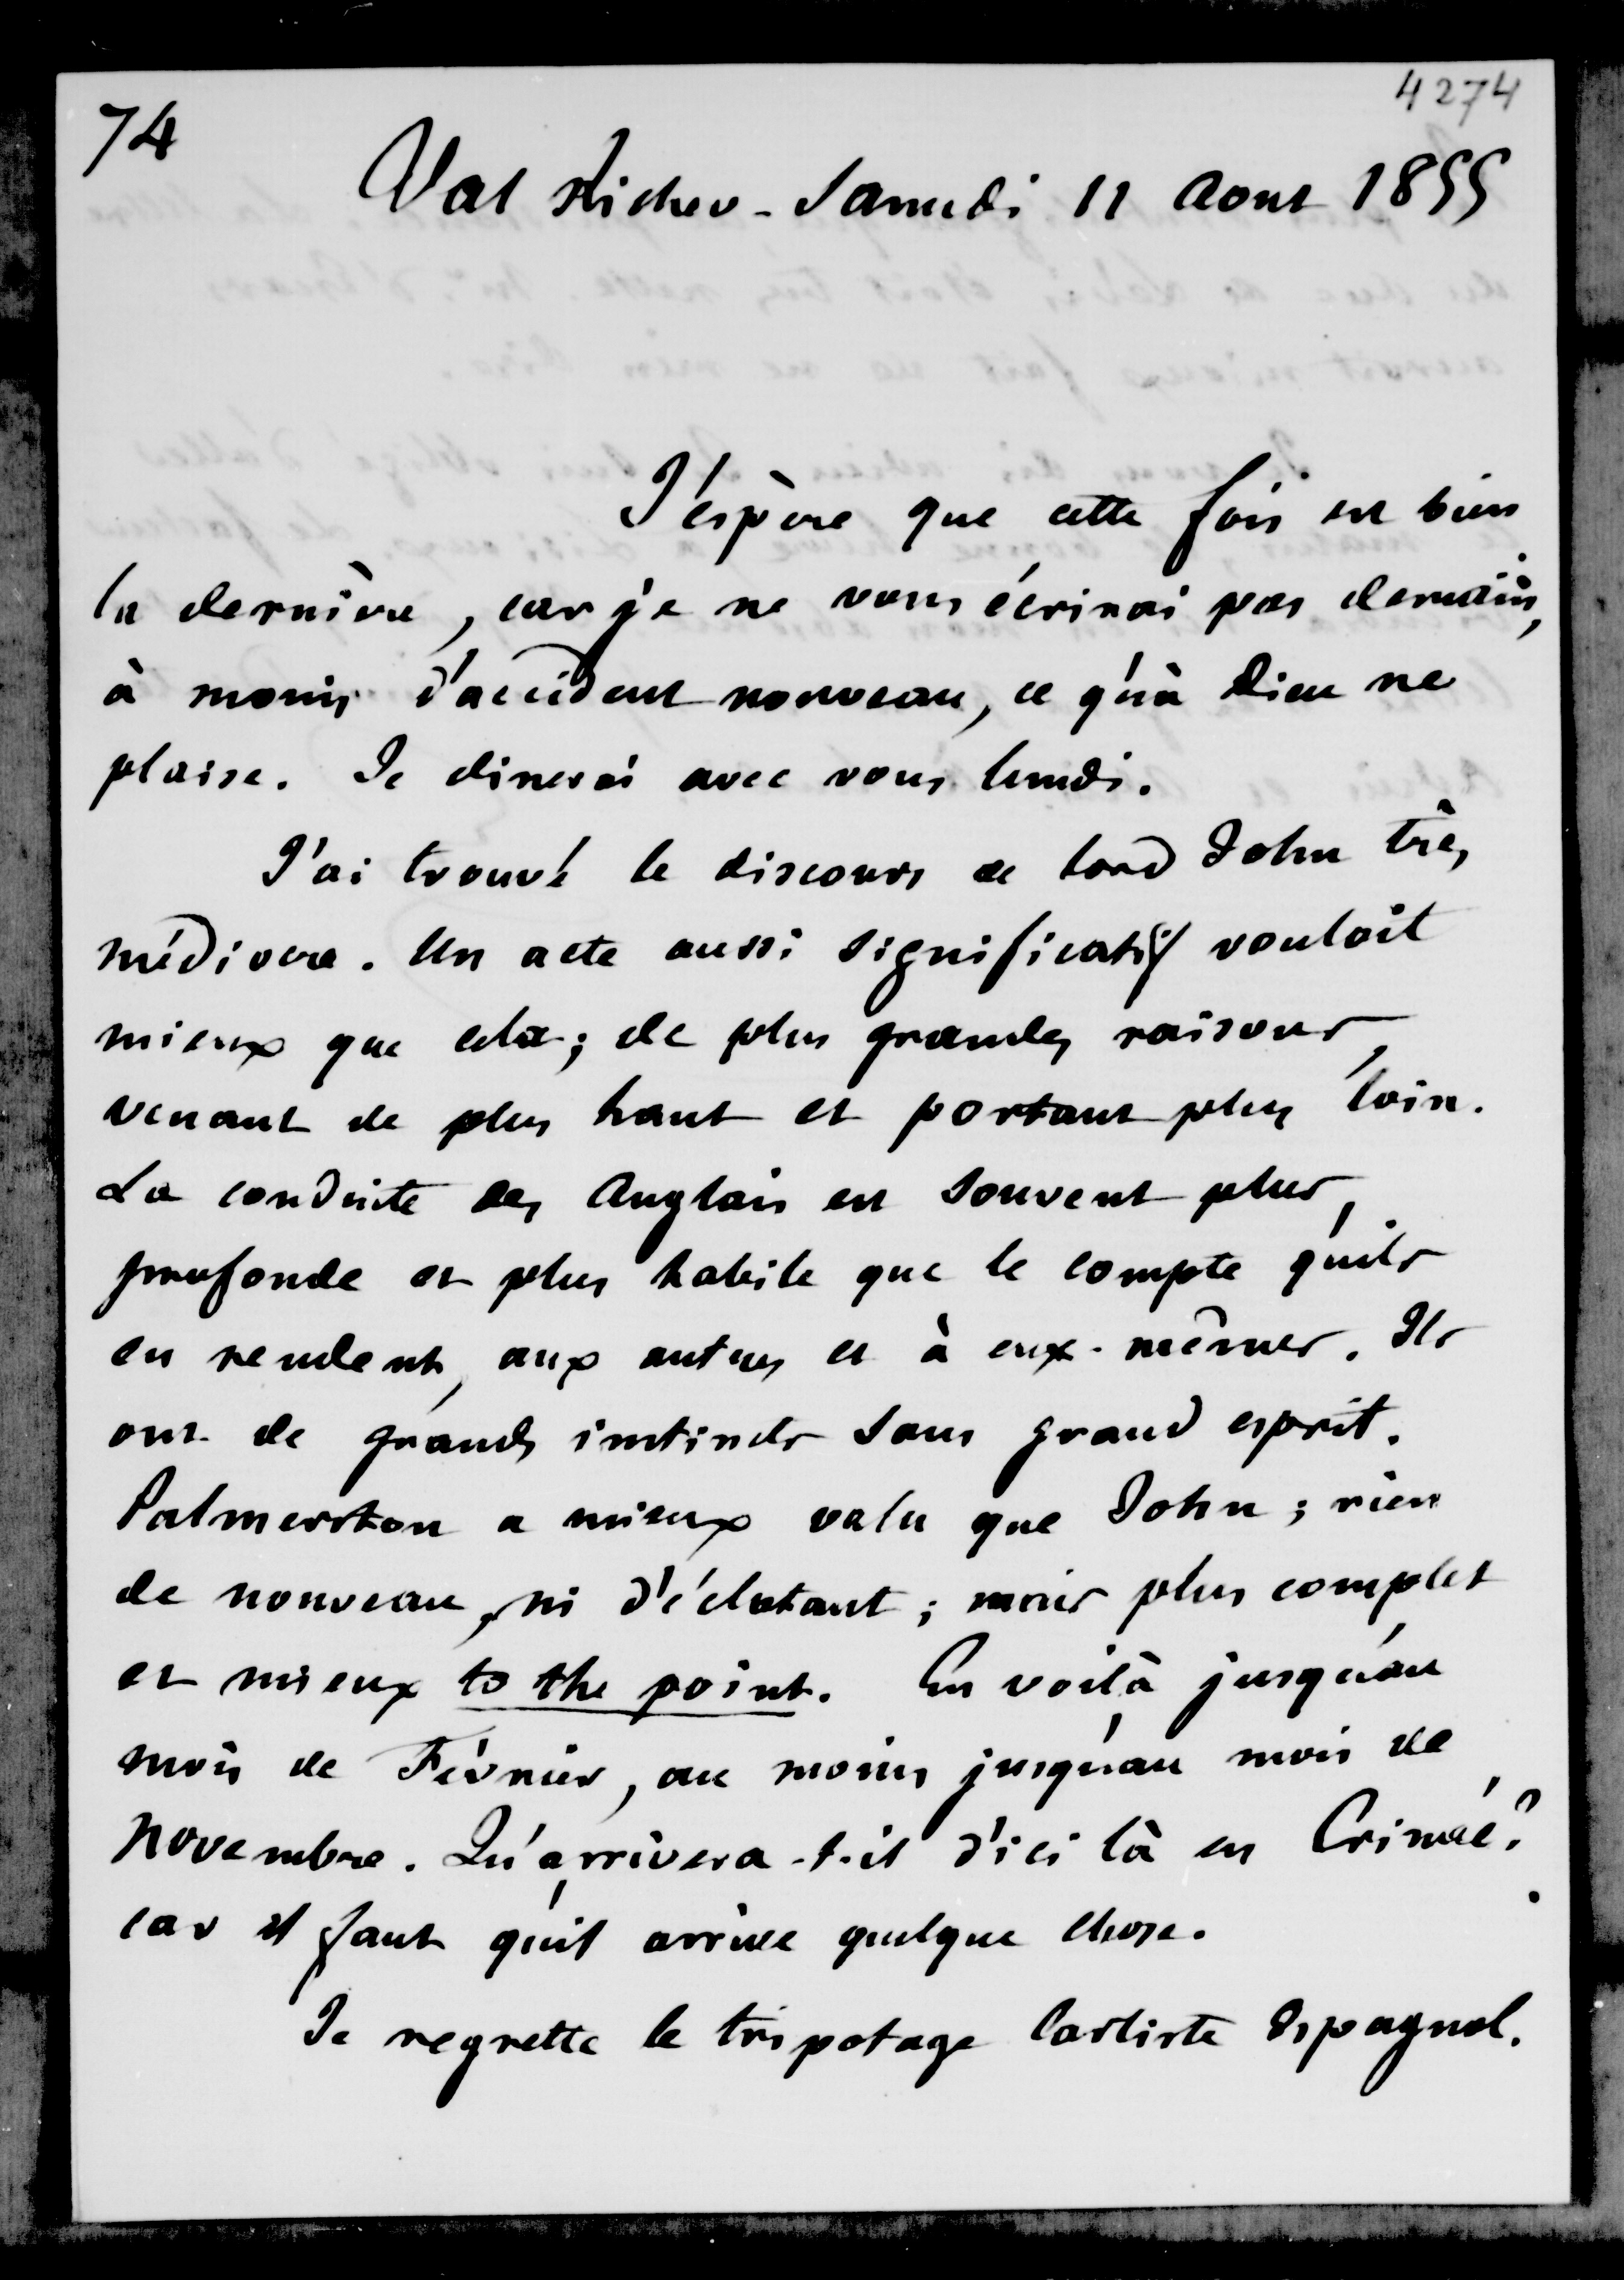 4274
74
Val Richer - Samedi 11 Aout 1855
J'espère que cette fois est bien
la dernière, car je ne vous écrirai pas demain,
à moins d'accident nouveau, ce qu'à Dieu ne
plaise. Je dinerai avec vous lundi.
J'ai trouvé le discours de lord John très
médiocre. Un acte aussi significatif vouloit
mieux que cela ; de plus grandes raisons,
venant de plus haut et portant plus loin.
La conduite des Anglais est souvent plus
profonde et plus habile que le compte qu'ils
en rendent, aux autres et à eux-mêmes. Ils
ont de grands instincts sans grand esprit.
Palmerston a mieux valu que John ; rien
de nouveau, ni d'éclatant ; mais plus complet
et mieux to the point. En voilà jusqu'au
mois de Février, au moins jusqu'au mois de
Novembre. Qu'arrivera-t-il d'ici là en Crimée ?
car il faut qu'il arrive quelque chose.
Je regrette le tripotage Carliste Espagnol.